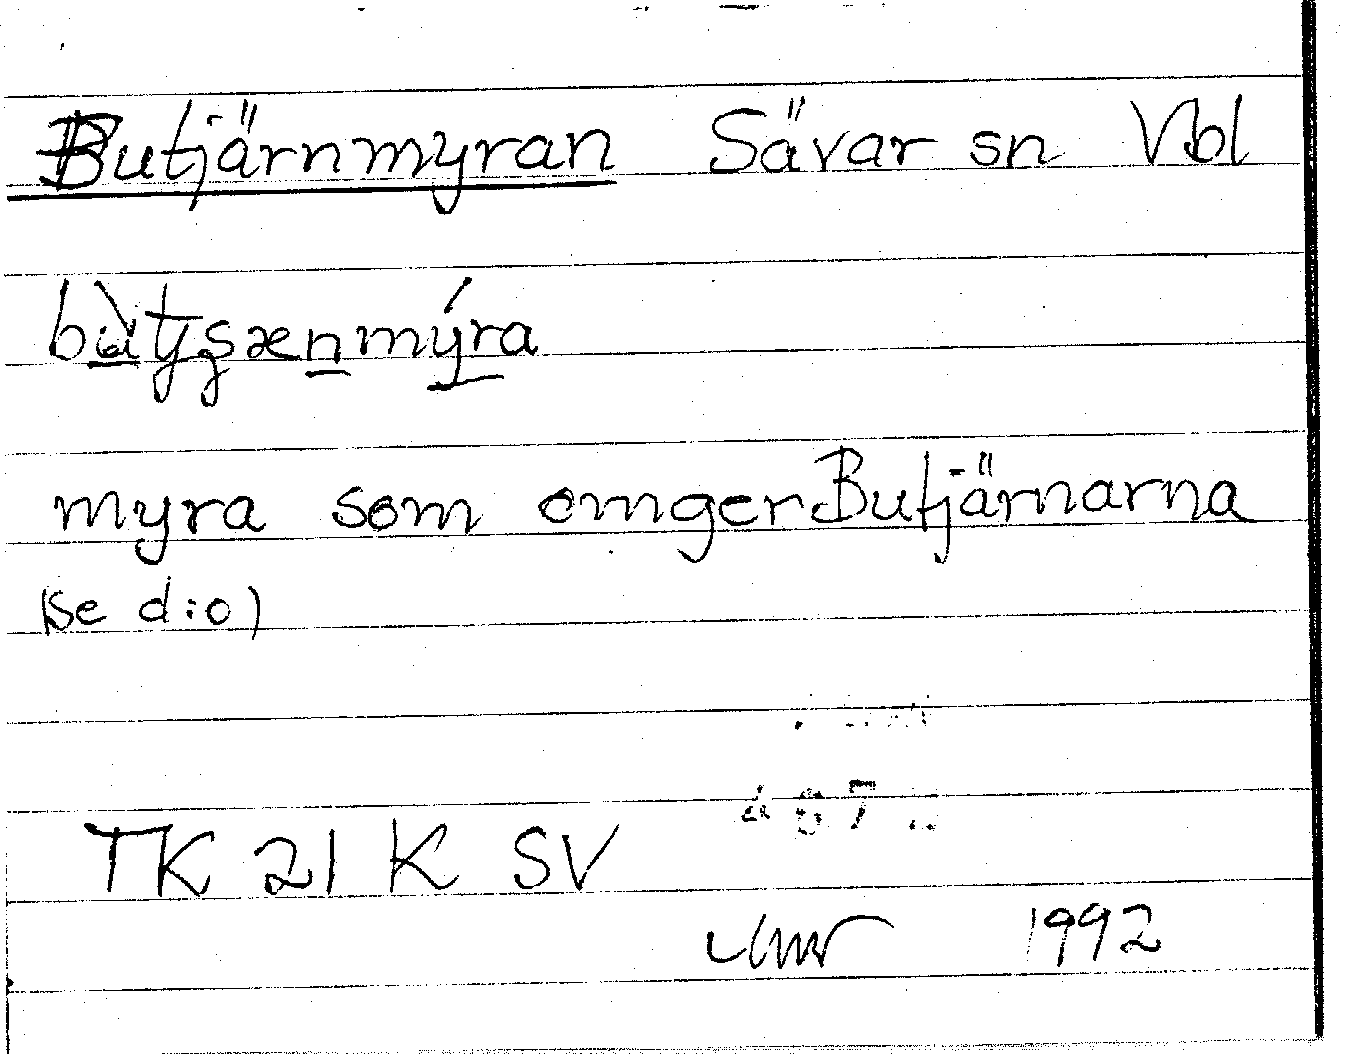 Butjärnmyran Sävar sn Vbl
bùtʃsænmýra
myra som omger Butjärnarna
(se d:o)
TK 21 K SV
1992